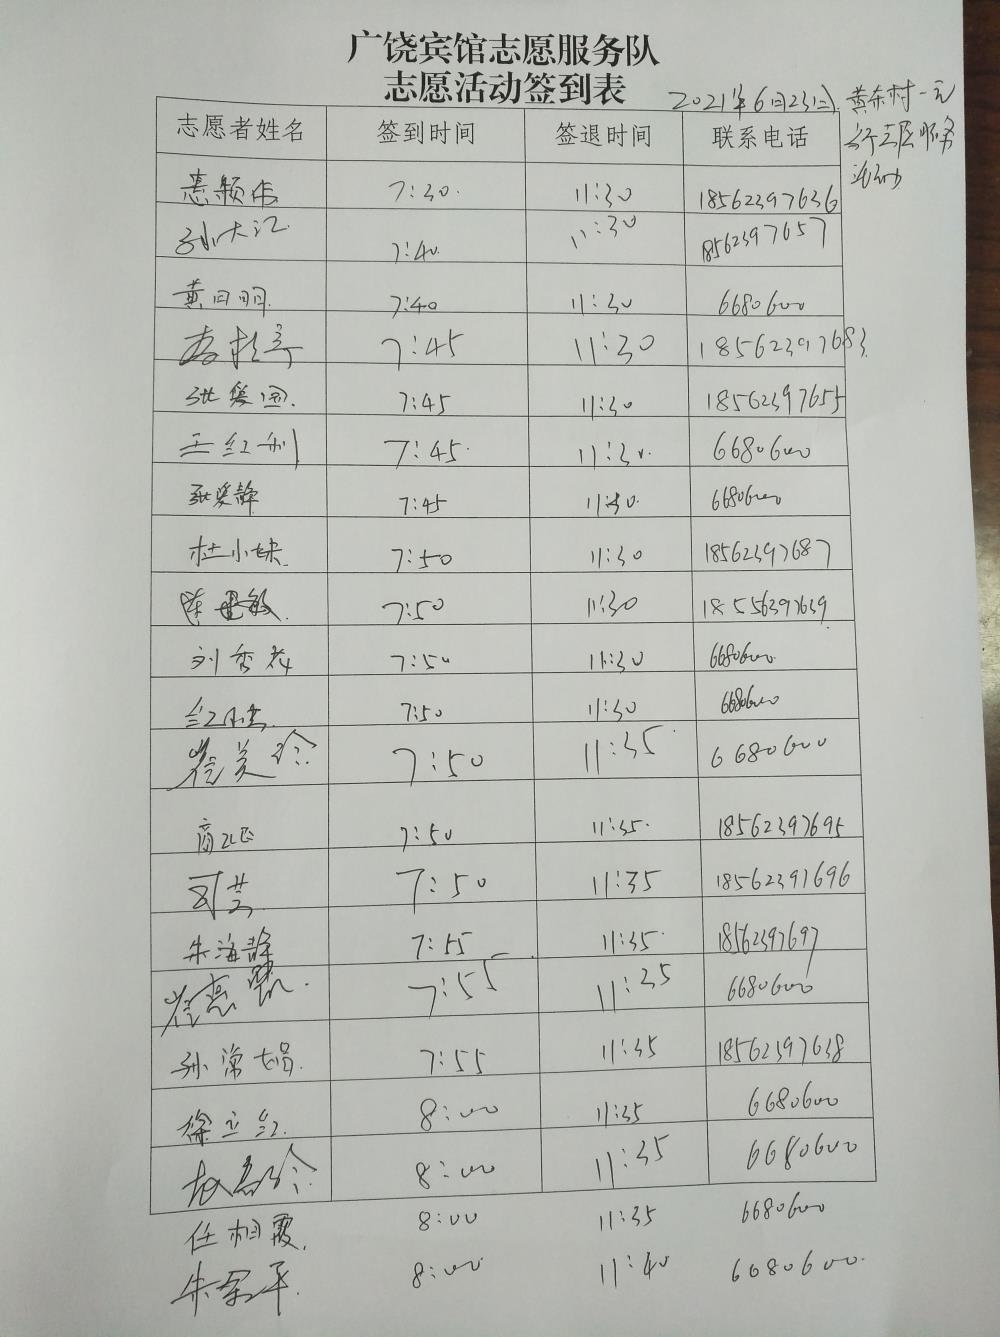 广饶宾馆志愿服务队
志愿活动签到表
2021年6月23日 黄东村一元
志愿服务
活动
志愿者姓名 签到时间 签退时间 联系电话
7:30 11:30 18562397636
孙大江 7:40 11:30 18562397657
黄日明 7:40 11:30 6680600
7:45 11:30 18562397683
张爱国 7:45 11:30 18562397655
王红利 7:45 11:30 6680600
张爱静 7:45 11:30 6680600
杜小妹 7:50 11:30 18562397687
陈 敏 7:50 11:30 18556397639
刘秀花 7:50 11:30 6680600
7:50 11:30 6680600
崔美玲 7:50 11:35 6680600
商 7:50 11:35 18562397695
7:50 11:35 18562397696
朱海静 7:55 11:35 18562397697
崔 7:55 11:35 6680600
孙常娟 7:55 11:35 18562397638
徐立红 8:00 11:35 6680600
8:00 11:35 6680600
任相霞 8:00 11:35 6680600
朱军平 8:00 11:40 6680600